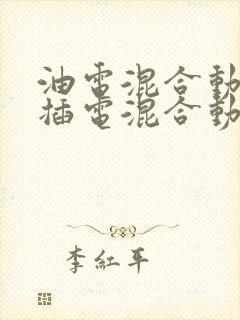 油電混合動
插電混合動
李紅平